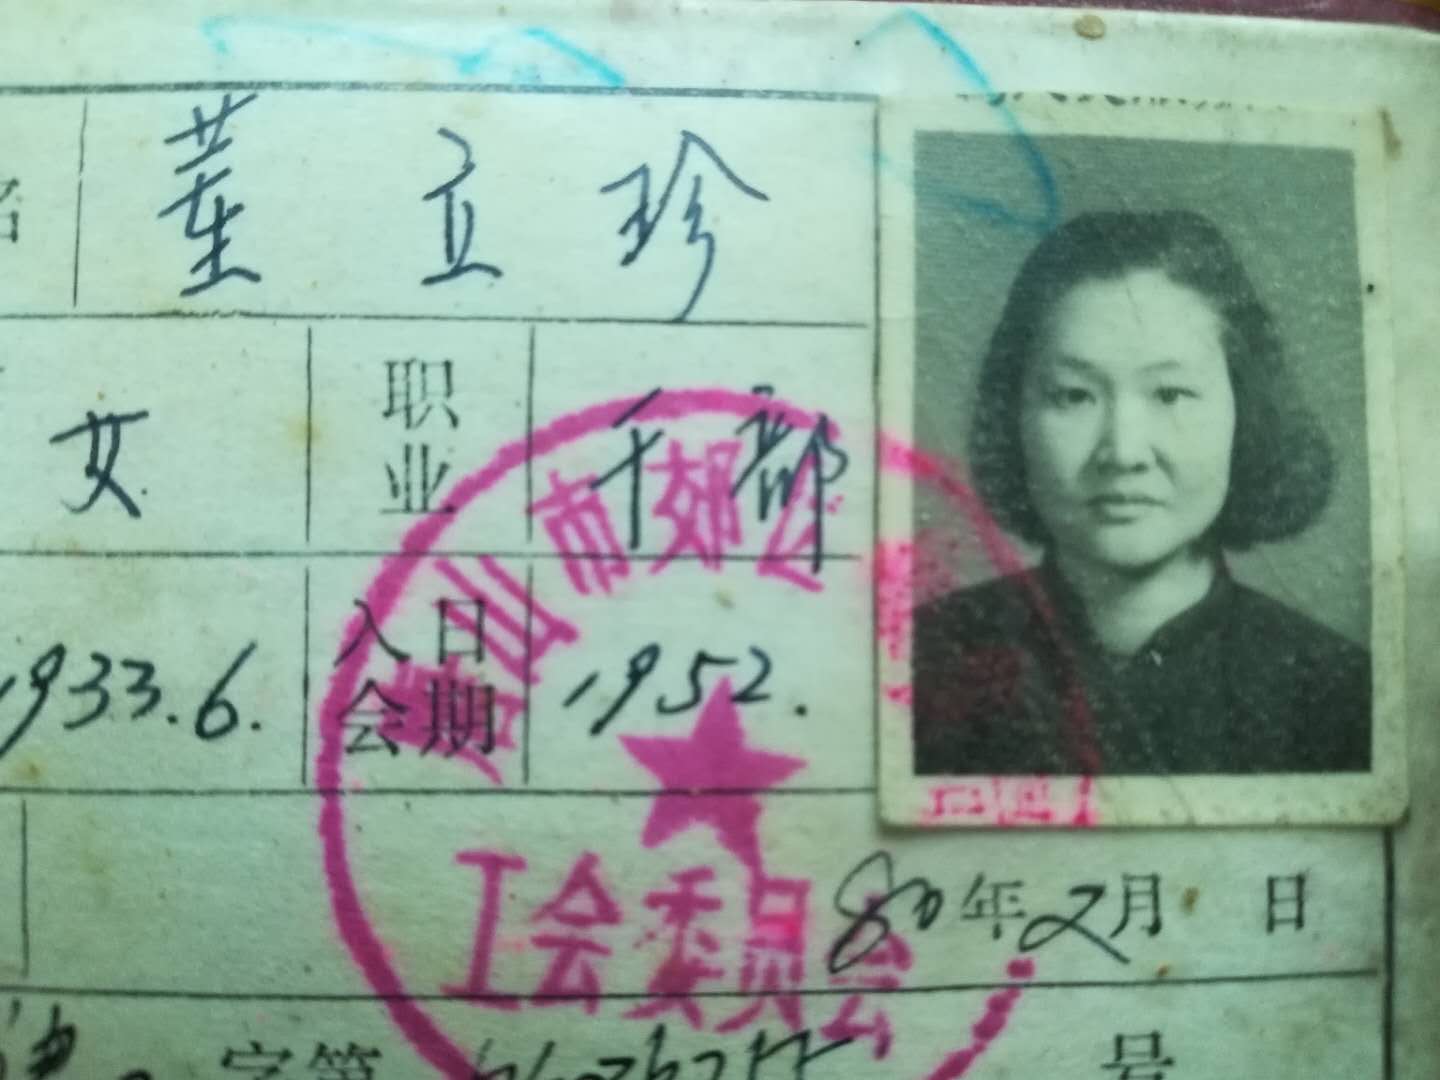 董立珍
女 职业 干部
1933.6. 入会日期 1952.
山市郊区
工会委员会
80年2月 日
字第 号